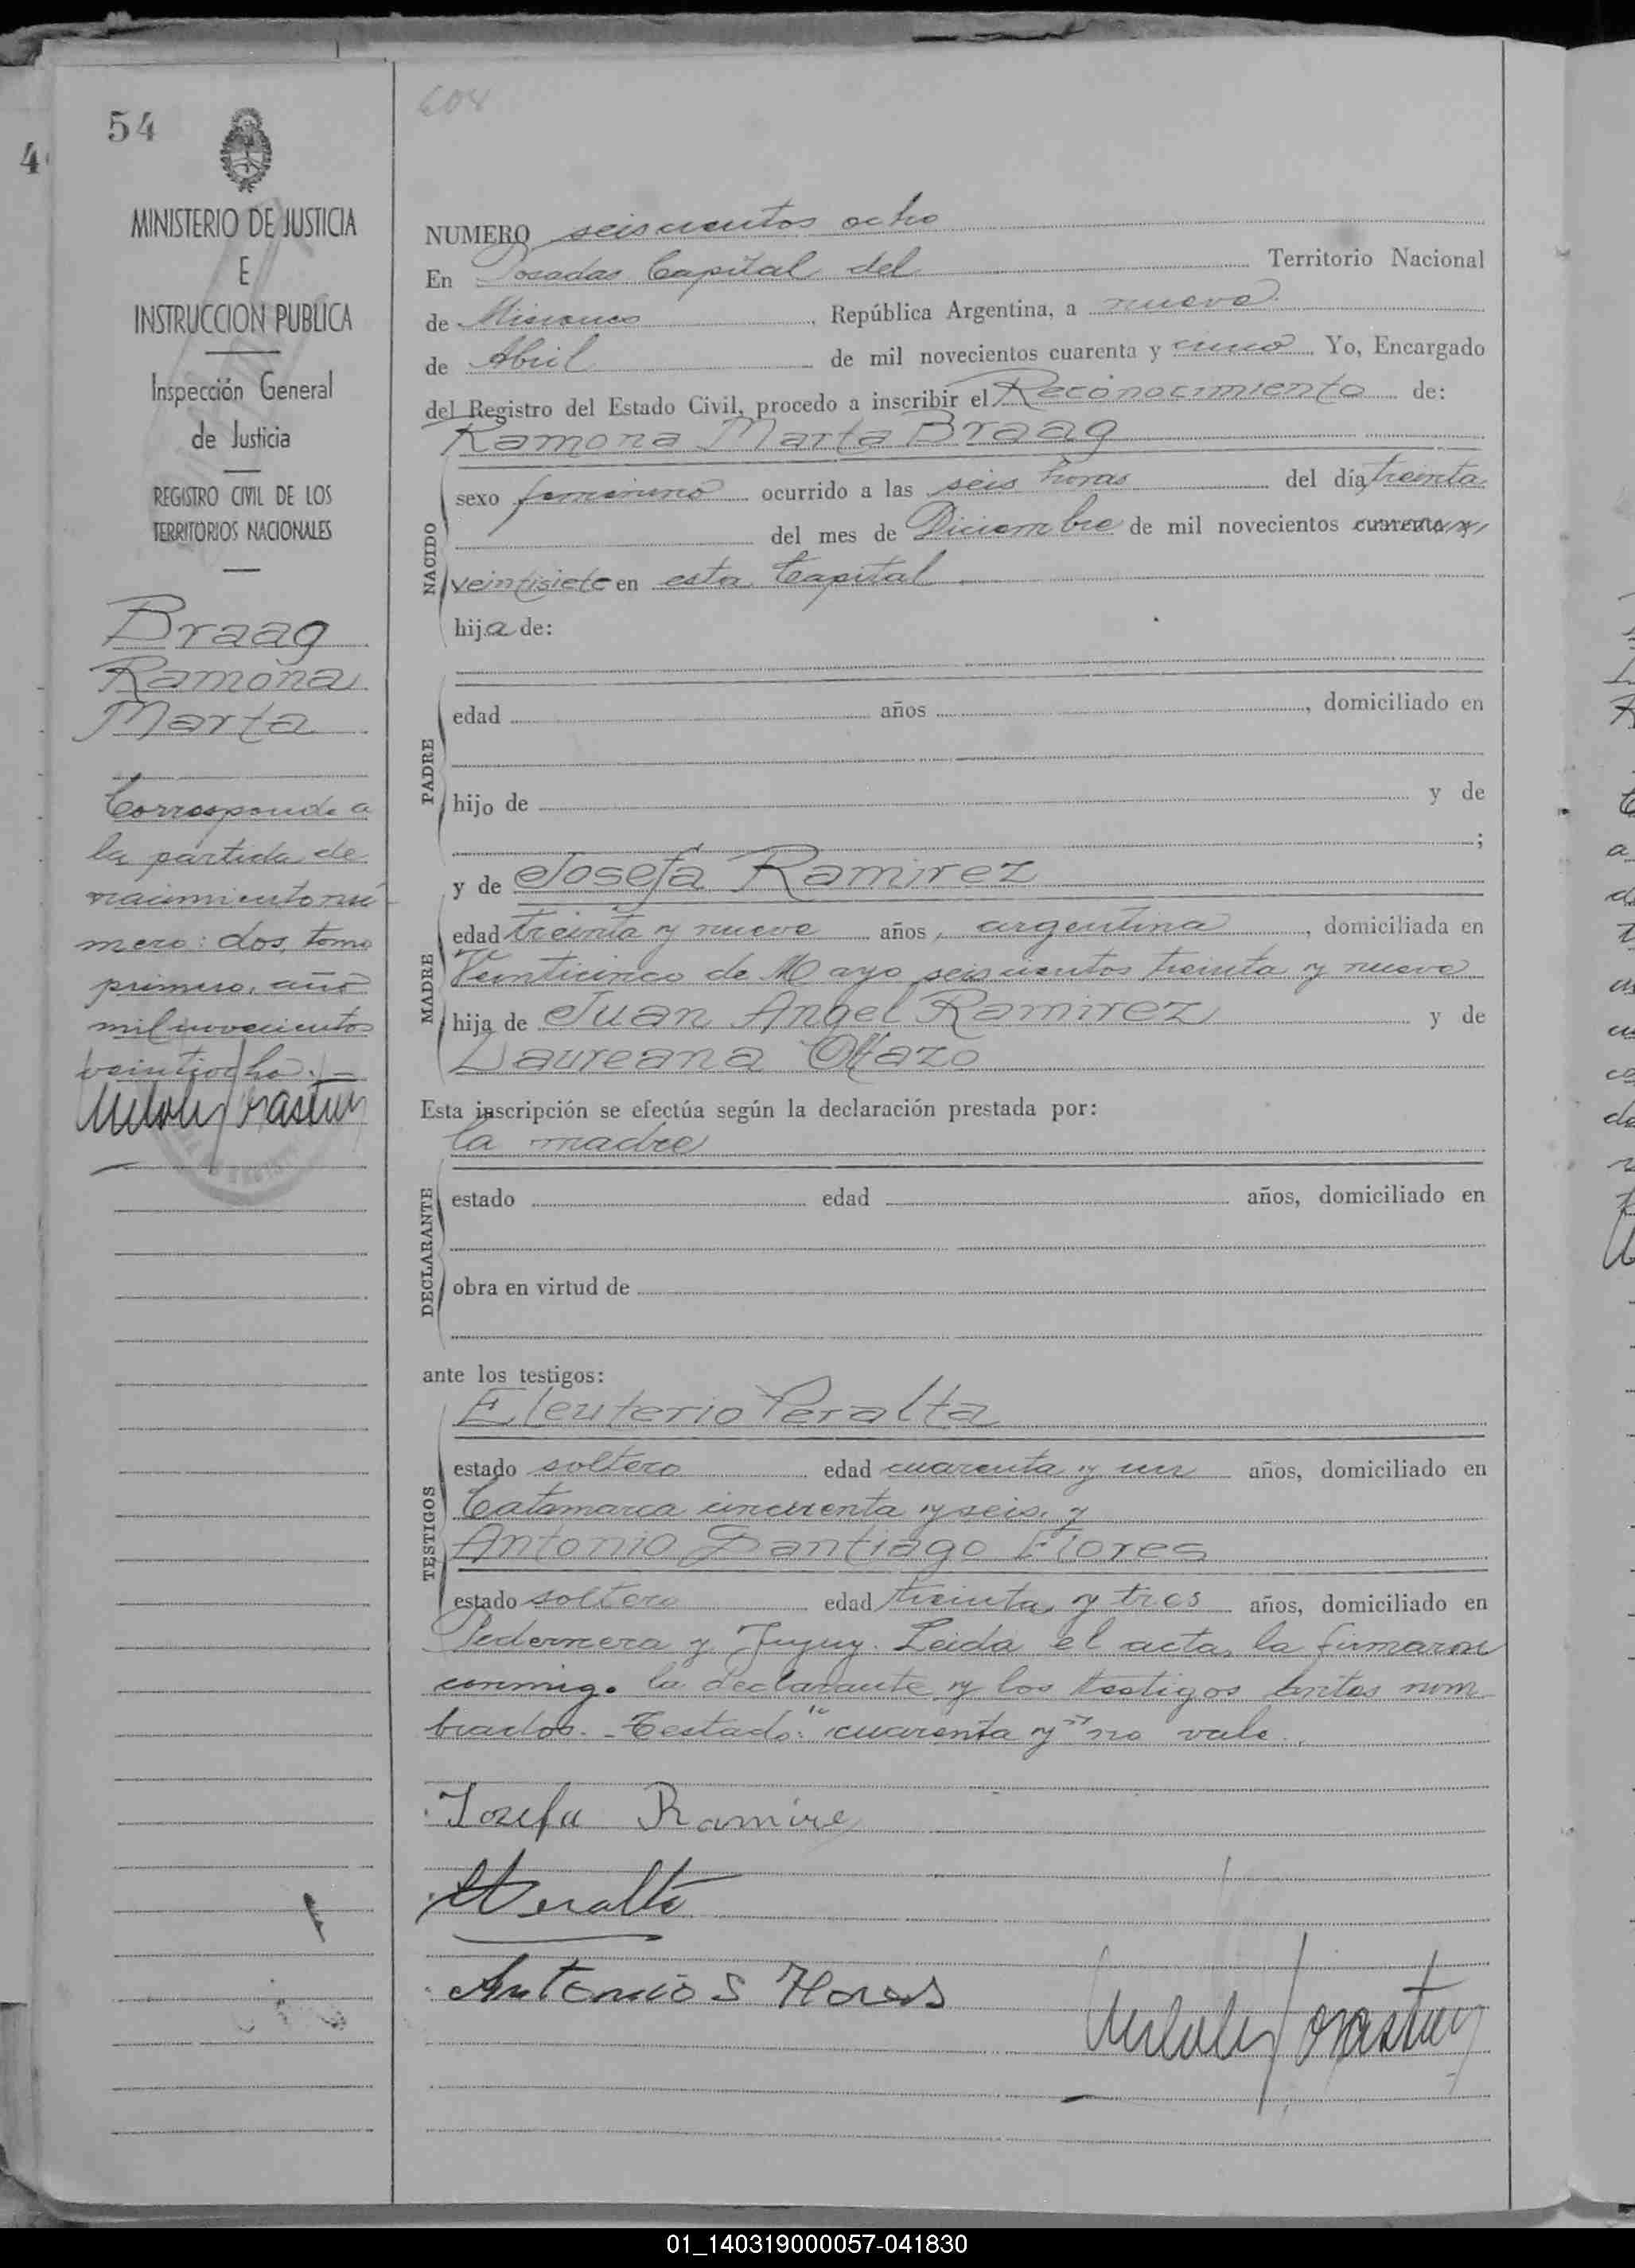 608
54
4
MINISTERIO DE JUSTICIA
E
INSTRUCCION PUBLICA
Inspección General
de Justicia
REGISTRO CIVIL DE LOS
TERRITORIOS NACIONALES
Braag
Ramona
Marta
Corresponde a
la partida de
nacimiento nú
mero: dos, tomo
primero, año
mil novecientos
veintiocho.-
NUMERO seiscientos ocho
En Posadas Capital del Territorio Nacional
de Misiones, República Argentina, a nueve
de Abril de mil novecientos cuarenta y cinco Yo, Encargado
del Registro del Estado Civil, procedo a inscribir el Reconocimiento de:
Ramona Marta Braag
NACIDO
sexo femenino ocurrido a las seis horas del día treinta
del mes de Diciembre de mil novecientos cuarenta y
veintisiete en esta Capital
hija de:
PADRE
edad años, domiciliado en
hijo de y de
;
MADRE
y de Josefa Ramirez
edad treinta y nueve años, argentina, domiciliada en
Veinticinco de Mayo seiscientos treinta y nueve
hija de Juan Angel Ramirez y de
Laureana Otazo
Esta inscripción se efectúa según la declaración prestada por:
la madre
DECLARANTE
estado edad años, domiciliado en
obra en virtud de
ante los testigos:
TESTIGOS
Eleuterio Peralta
estado soltero edad cuarenta y un años, domiciliado en
Catamarca cincuenta y seis, y
Antonio Santiago Flores
estado soltero edad treinta y tres años, domiciliado en
Pedernera y Jujuy. Leida el acta, la firmaron
conmigo la declarante y los testigos antes nom
brados.- Testado: "cuarenta y" no vale.
Josefa Ramire
EPeralta
Antonio S Flores
01_140319000057-041830